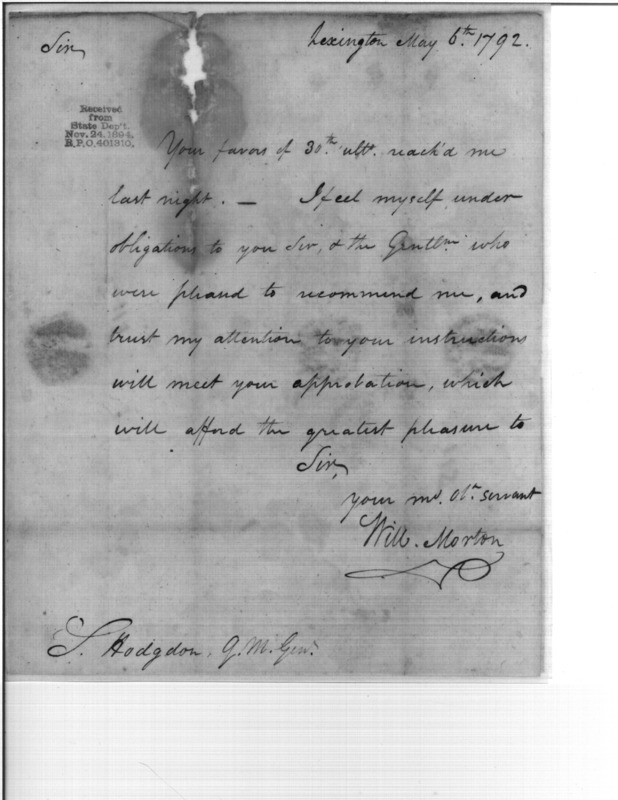 Lexington May 6th. 1792.
Sir,
Received
from
State Dep't.
Nov. 24. 1894.
R.P.O. 401310.
Your favors of 30th. ulto. reach'd me
last night. — I feel myself under
obligations to you Sir, & the Gentlmn who
were pleased to recommend me, and
trust my attention to your instructions
will meet your approbation, which
will afford the greatest pleasure to
Sir,
your mo. Ob. servant
Will. Morton
S. Hodgdon, Q. M. Genl.